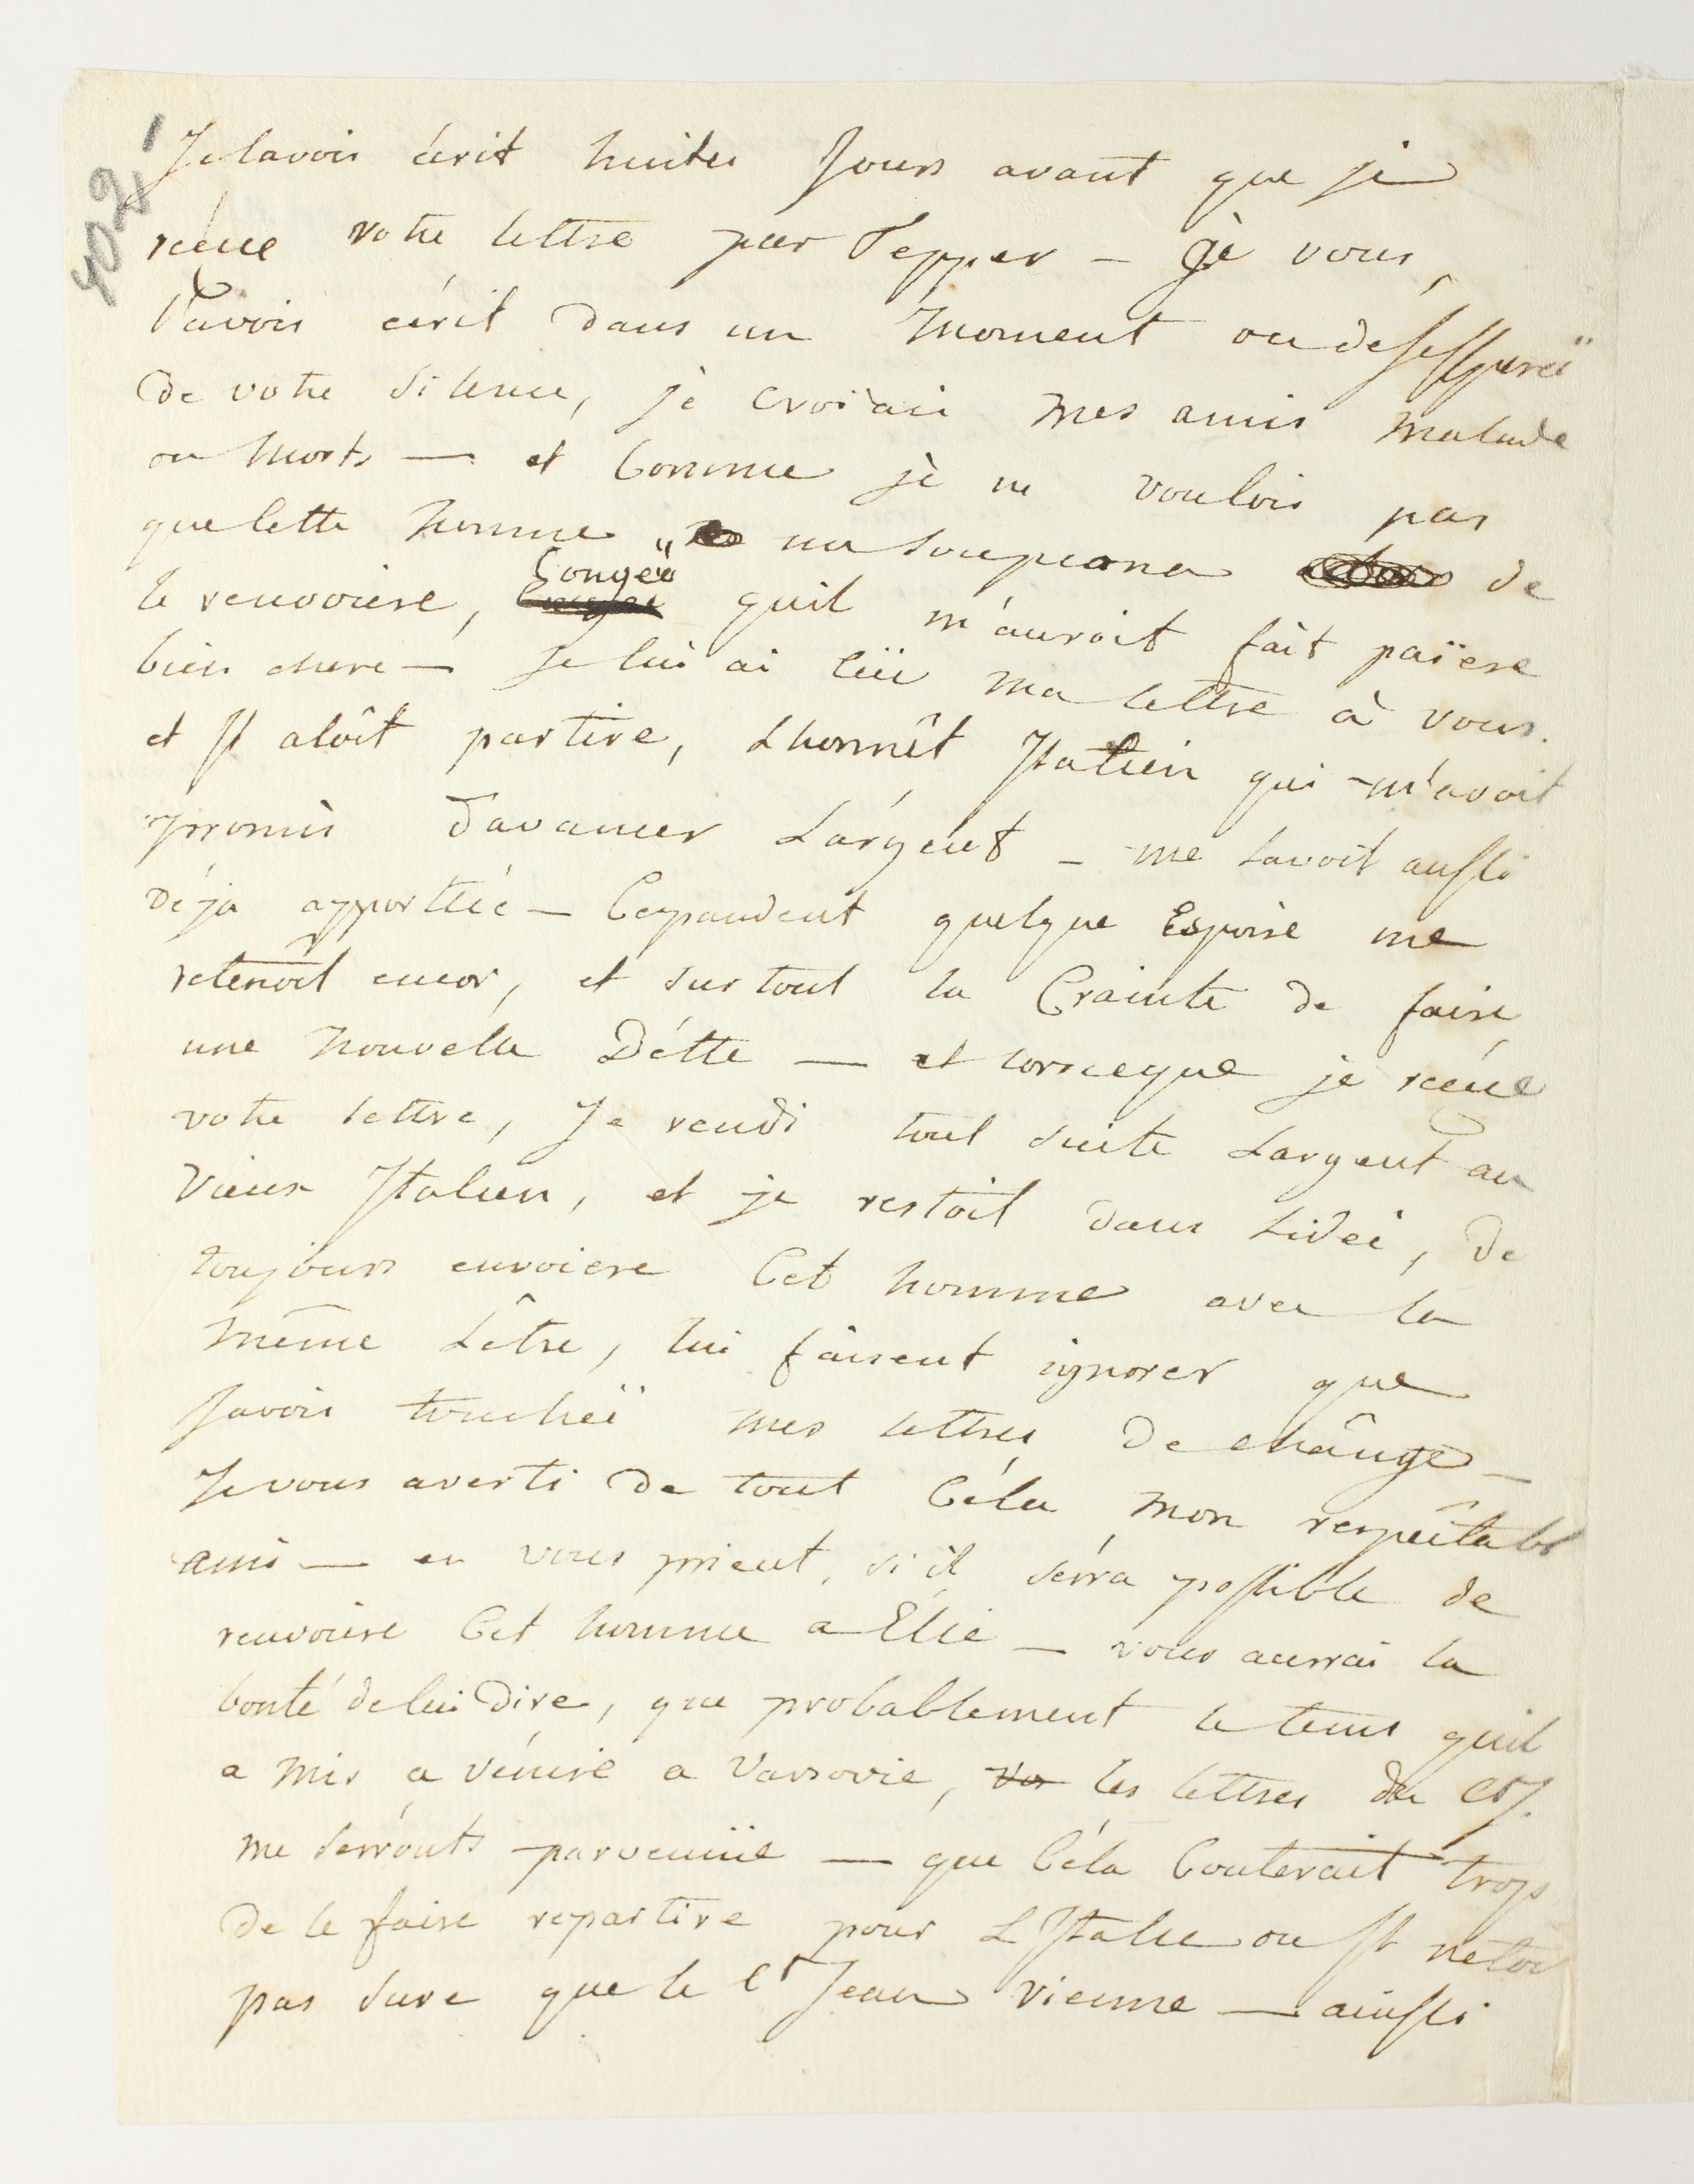 402'
Je lavois écrit huites Jours avant que je
récue votre lettre par Tepper – Je vous
l'avois écrit dans un Moment ou deseſſpereï
de votre silence, jè croïaii mes amis malade
ou Morts — et Comme jè ne voulois pas
que cette homme ne soupciona de
le renvoiere, Congeë quil m'auroit fàit païere
bien chere — Je lui ai lüe ma lettre à vous.
et Il alôit partire, Lhonnêt Italien qui m'avoit
promis d'avancer Lárgent – me lavoit auſſi
Déja apporttée – Cepandent quelque Espoire me
retenoit encor, et sur tout la Crainte de faire
une nouvélle Détte — et lorsceque je récúe
votre lettre, Je rendi tout suite Largent au
vieux Italien, et je restoit dans Lideé, de
toujours envoiere Cet homme avec la
même Lêtre, lui faisent ignorer que
Javois toucheï mes lettres de chânge –
Je vous averti de tout Céla mon respéctable
ami — en vous prient, si il sérra poſſible de
renvoiere Cet homme a Elié – vous aurrai la
bonté de lui Dire, que probablement le tems quil
a mis a vénire a Varsovie, les lettres de
me serronts parvenüe — que Céla Couterait trop
de le faire repartire pour LItalie ou Il nétoi
pas sure que le Ct Jean vienne — ainſſi